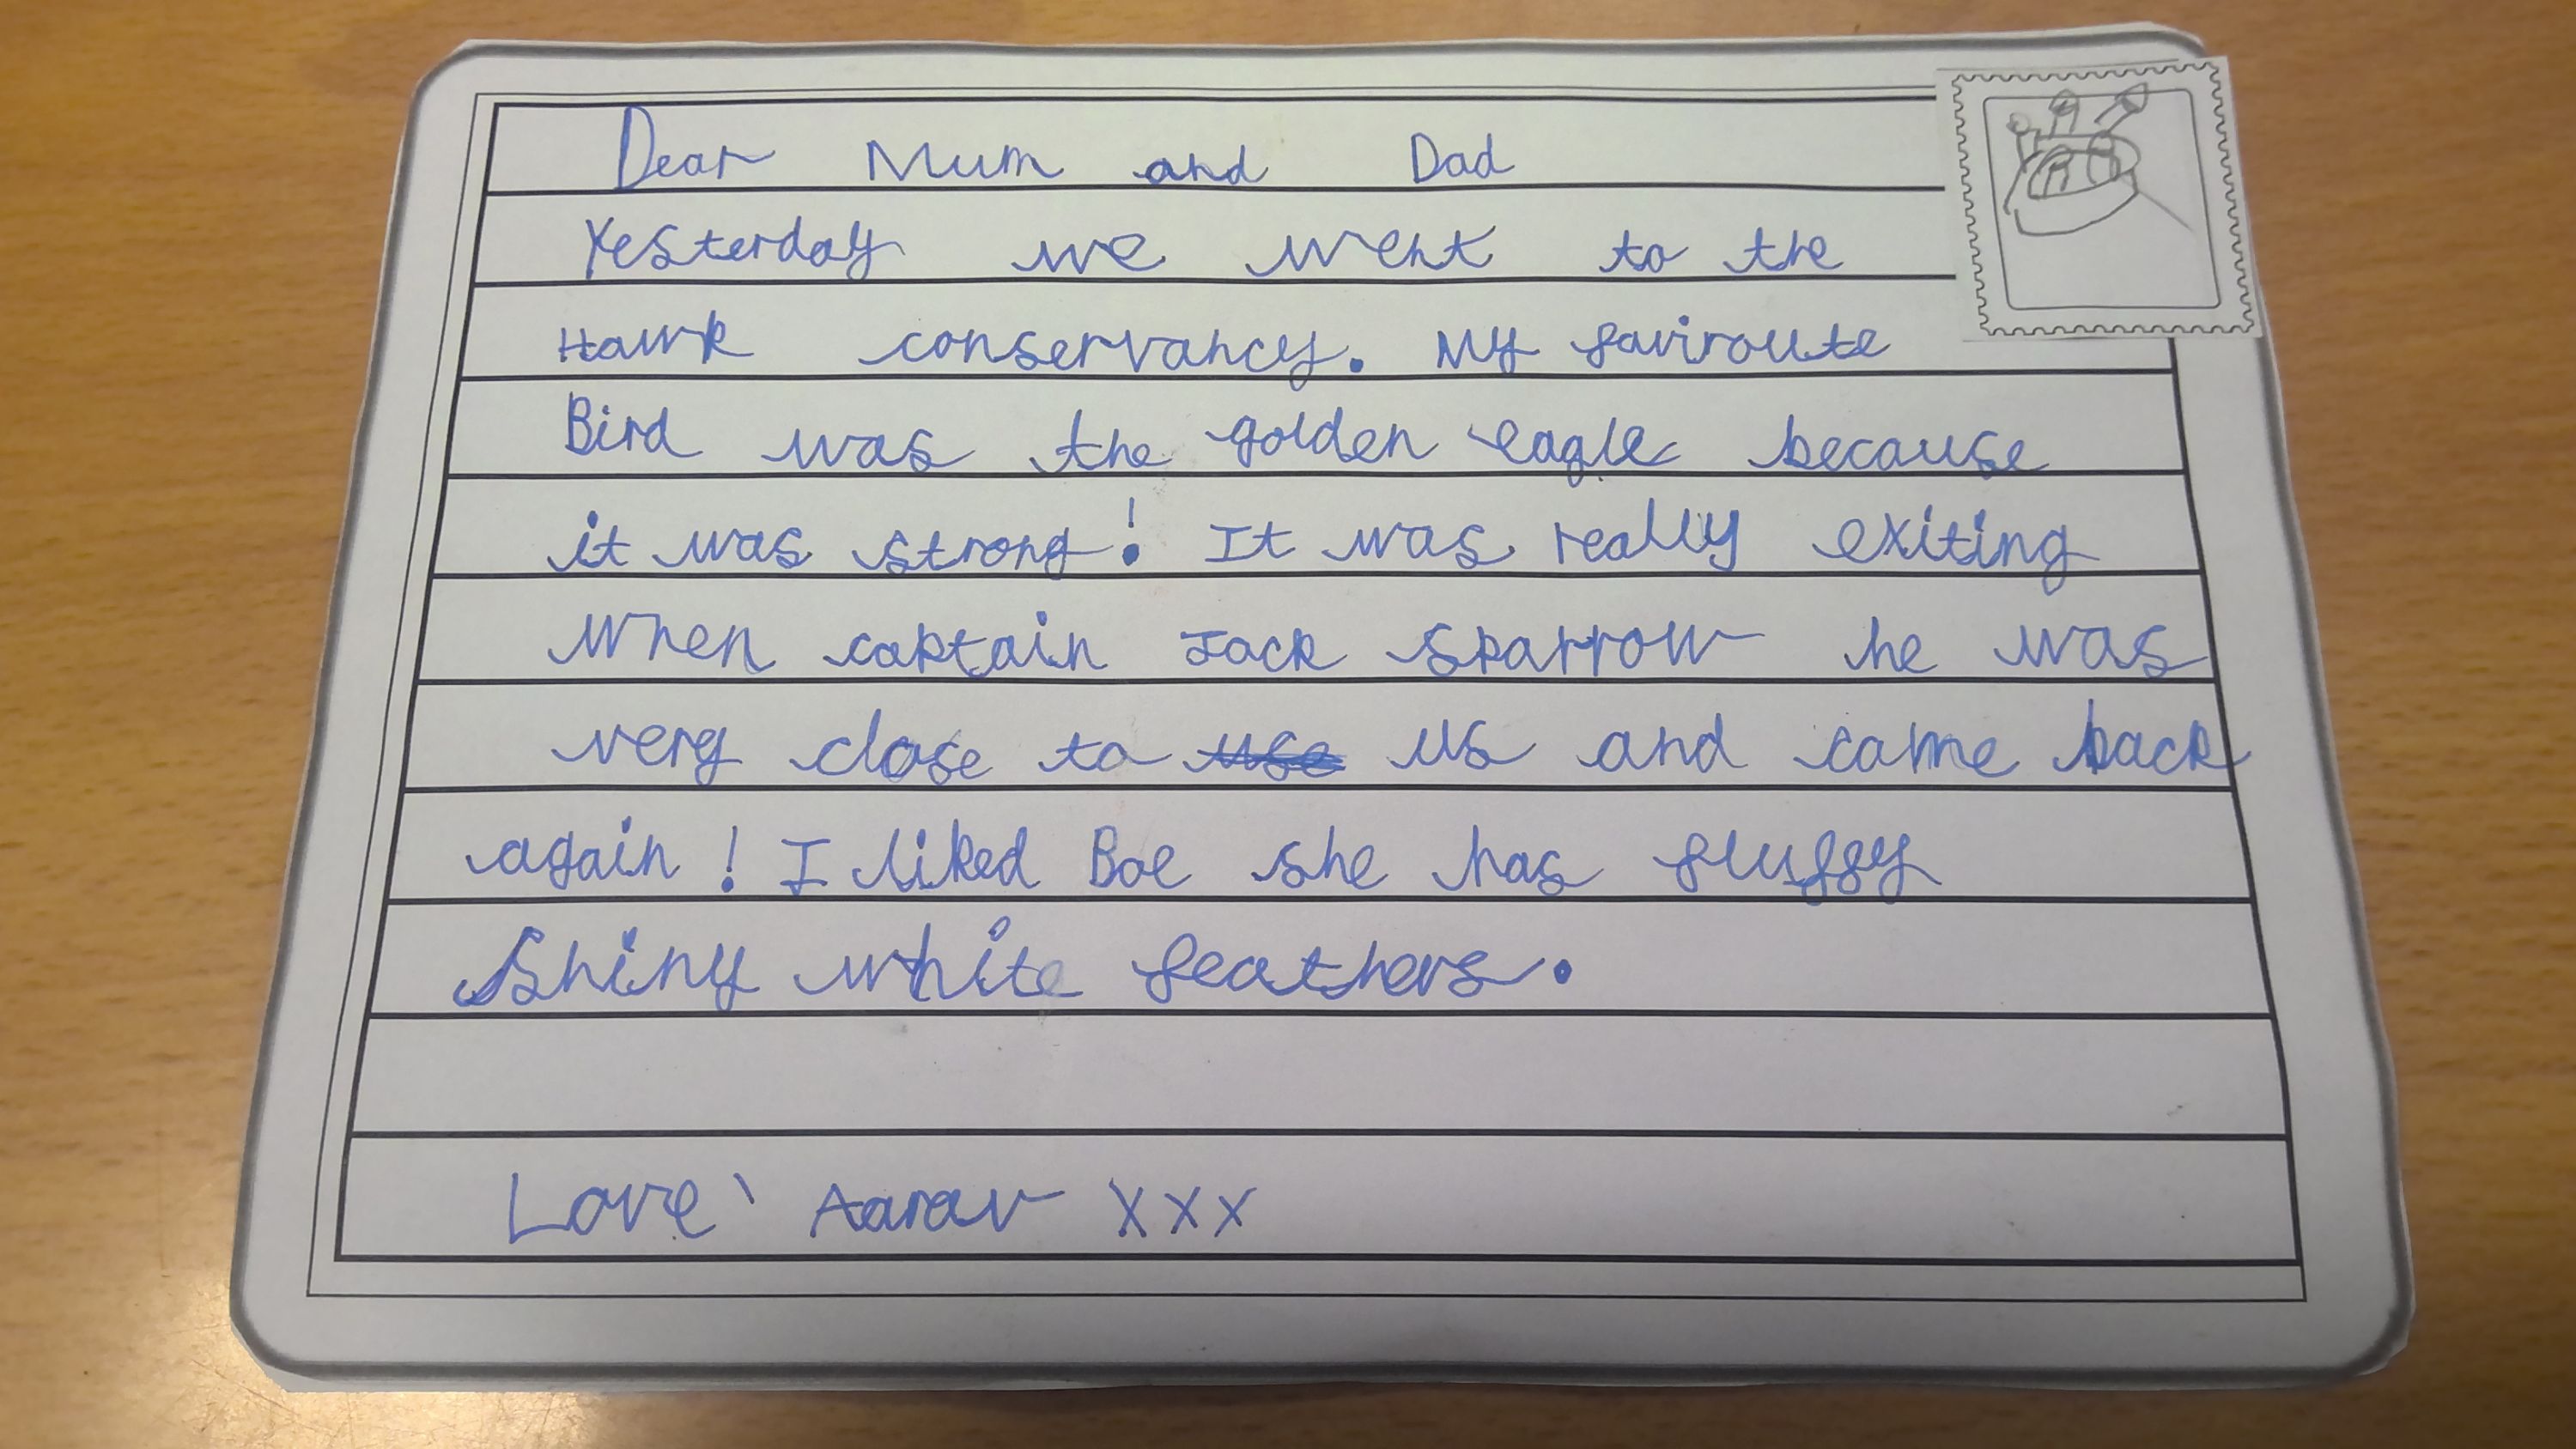 Dear Mum and Dad
Yesterday we went to the
Hawk conservancy. My faviroute
Bird was the golden eagle because
it was strong! It was really exiting
when captain Jack sparrow he was
very close to use us and came back
again! I liked Boe she has fluffy
Shiny white feathers.
Love' Aarav xxx